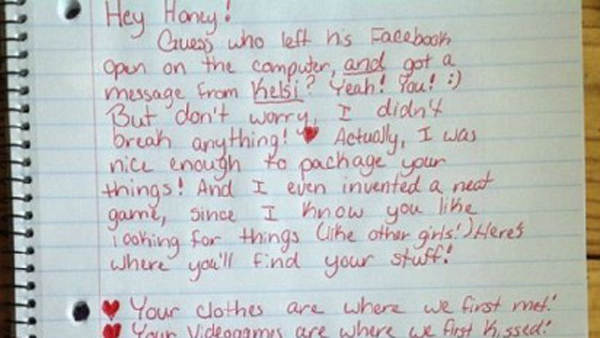 Hey Honey!
Guess who left his Facebook
open on the computer, and got a
message from Kelsi? Yeah! You! :)
But don't worry, I didn't
break anything! ♥ Actually, I was
nice enough to package your
things! And I even invented a neat
game, since I know you like
looking for things (like other girls!) Here's
where you'll find your stuff!
♥ Your clothes are where we first met!
♥ Your videogames are where we first kissed!